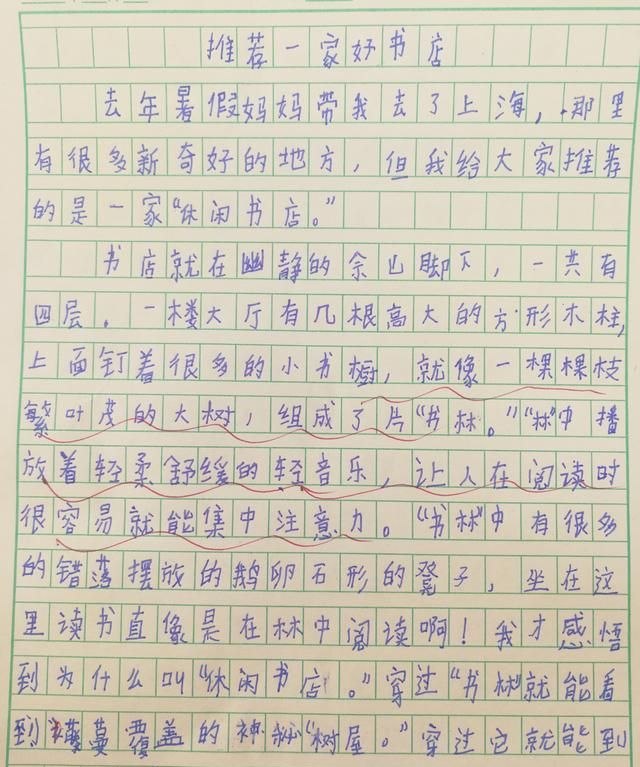 推荐一家好书店
去年暑假妈妈带我去了上海，那里
有很多新奇好的地方，但我给大家推荐
的是一家“休闲书店。”
书店就在幽静的佘山脚下，一共有
四层。一楼大厅有几根高大的方形木柱，
上面钉着很多的小书橱，就像一棵棵枝
繁叶茂的大树，组成了片“书林。”“林”中播
放着轻柔舒缓的轻音乐，让人在阅读时
很容易就能集中注意力。“书林”中有很多
的错落摆放的鹅卵石形的凳子，坐在这
里读书直像是在林中阅读啊！我才感悟
到为什么叫“休闲书店。”穿过“书林”就能看
到藤蔓覆盖的神秘“树屋。”穿过它就能到